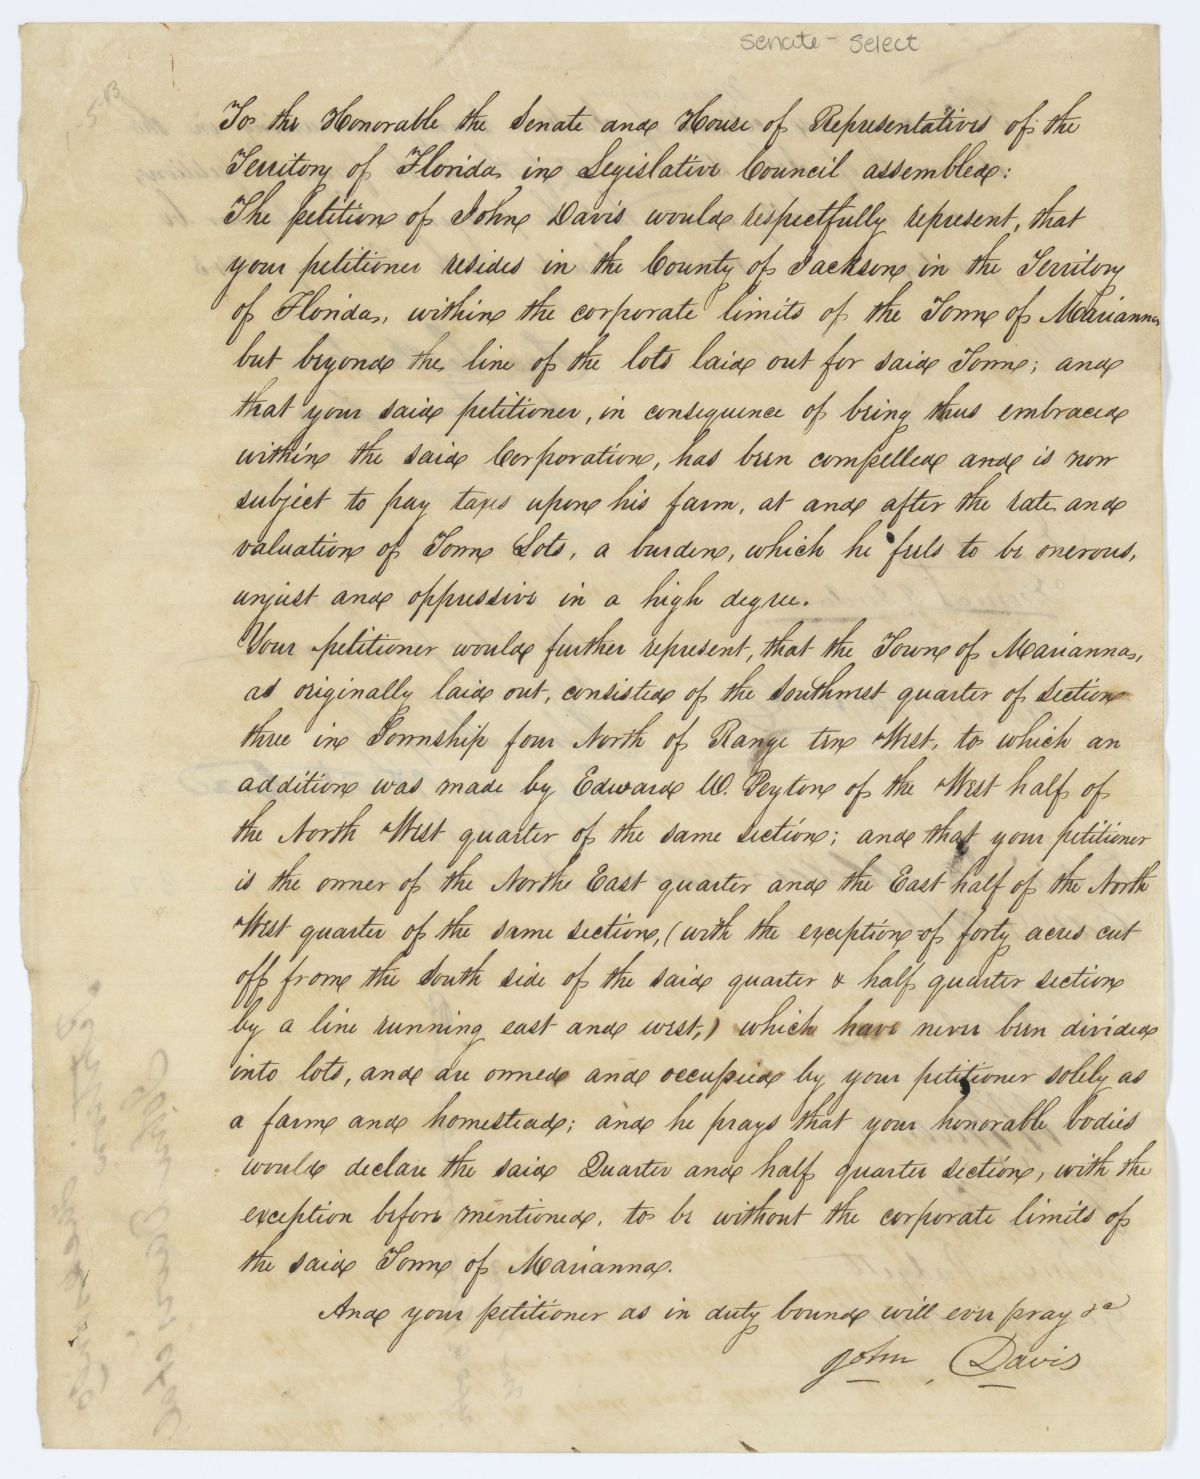 Senate - Select
5-B
To the Honorable the Senate and House of Representatives of the
Territory of Florida, in Legislative Council assembled:
The petition of John Davis would respectfully represent, that
your petitioner resides in the County of Jackson in the Territory
of Florida, within the corporate limits of the Town of Marianna
but beyond the line of the lots laid out for said Town; and
that your said petitioner, in consequence of being thus embraced
within the said Corporation, has been compelled and is now
subject to pay taxes upon his farm, at and after the rate and
valuation of Town Lots, a burden, which he feels to be onerous,
unjust and oppressive in a high degree.
Your petitioner would further represent, that the Town of Marianna,
as originally laid out, consisted of the Southwest quarter of section
three in Township four North of Range ten West, to which an
addition was made by Edward W. Peyton of the West half of
the North West quarter of the same section; and that your petitioner
is the owner of the North East quarter and the East half of the North
West quarter of the same section, (with the exception of forty acres cut
off from the South side of the said quarter & half quarter section
by a line running east and west,) which have never been divided
into lots, and are owned and occupied by your petitioner solely as
a farm and homestead; and he prays that your honorable bodies
would declare the said Quarter and half quarter section, with the
exception before mentioned, to be without the corporate limits of
the said Town of Marianna.
And your petitioner as in duty bound will ever pray &c
John Davis